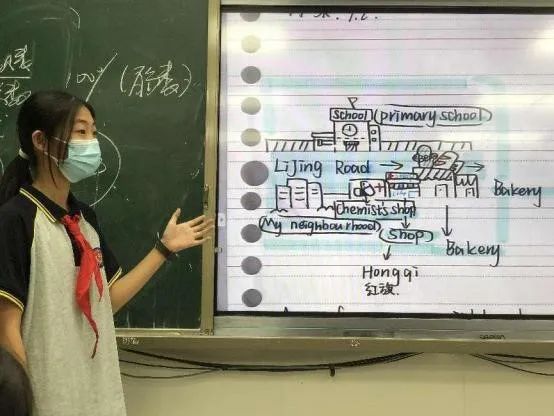 100% (脂素)
School (primary school)
Lijing Road Bakery
Chemist's shop
My neighbourhood (shop)
Bakery
Hongqi
红旗.